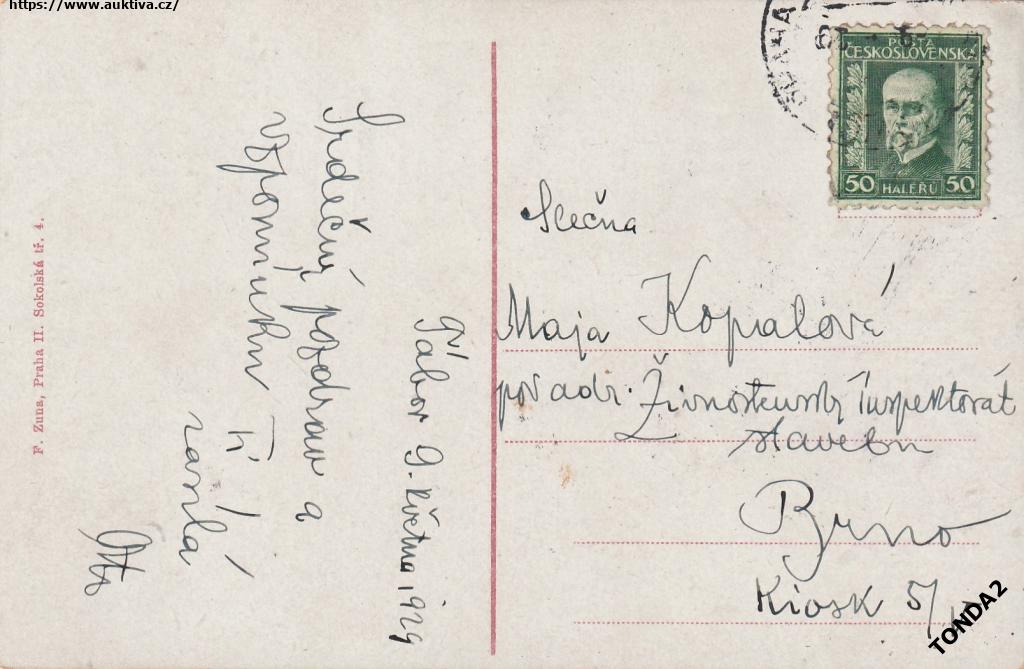 https://www.auktiva.cz/
F. Zuna, Praha II. Sokolská tř. 4.
Tábor 9. května 1929
Srdečný pozdrav a
vzpomínku Ti
zasílá
Otto
POŠTA
ČESKOSLOVENSKÁ
50 HALÉŘŮ 50
Slečna
Maja Kopalová
pod adr. Živnostenský Inspektorát
stavební
Brno
Kiosk 5/
TONDA2